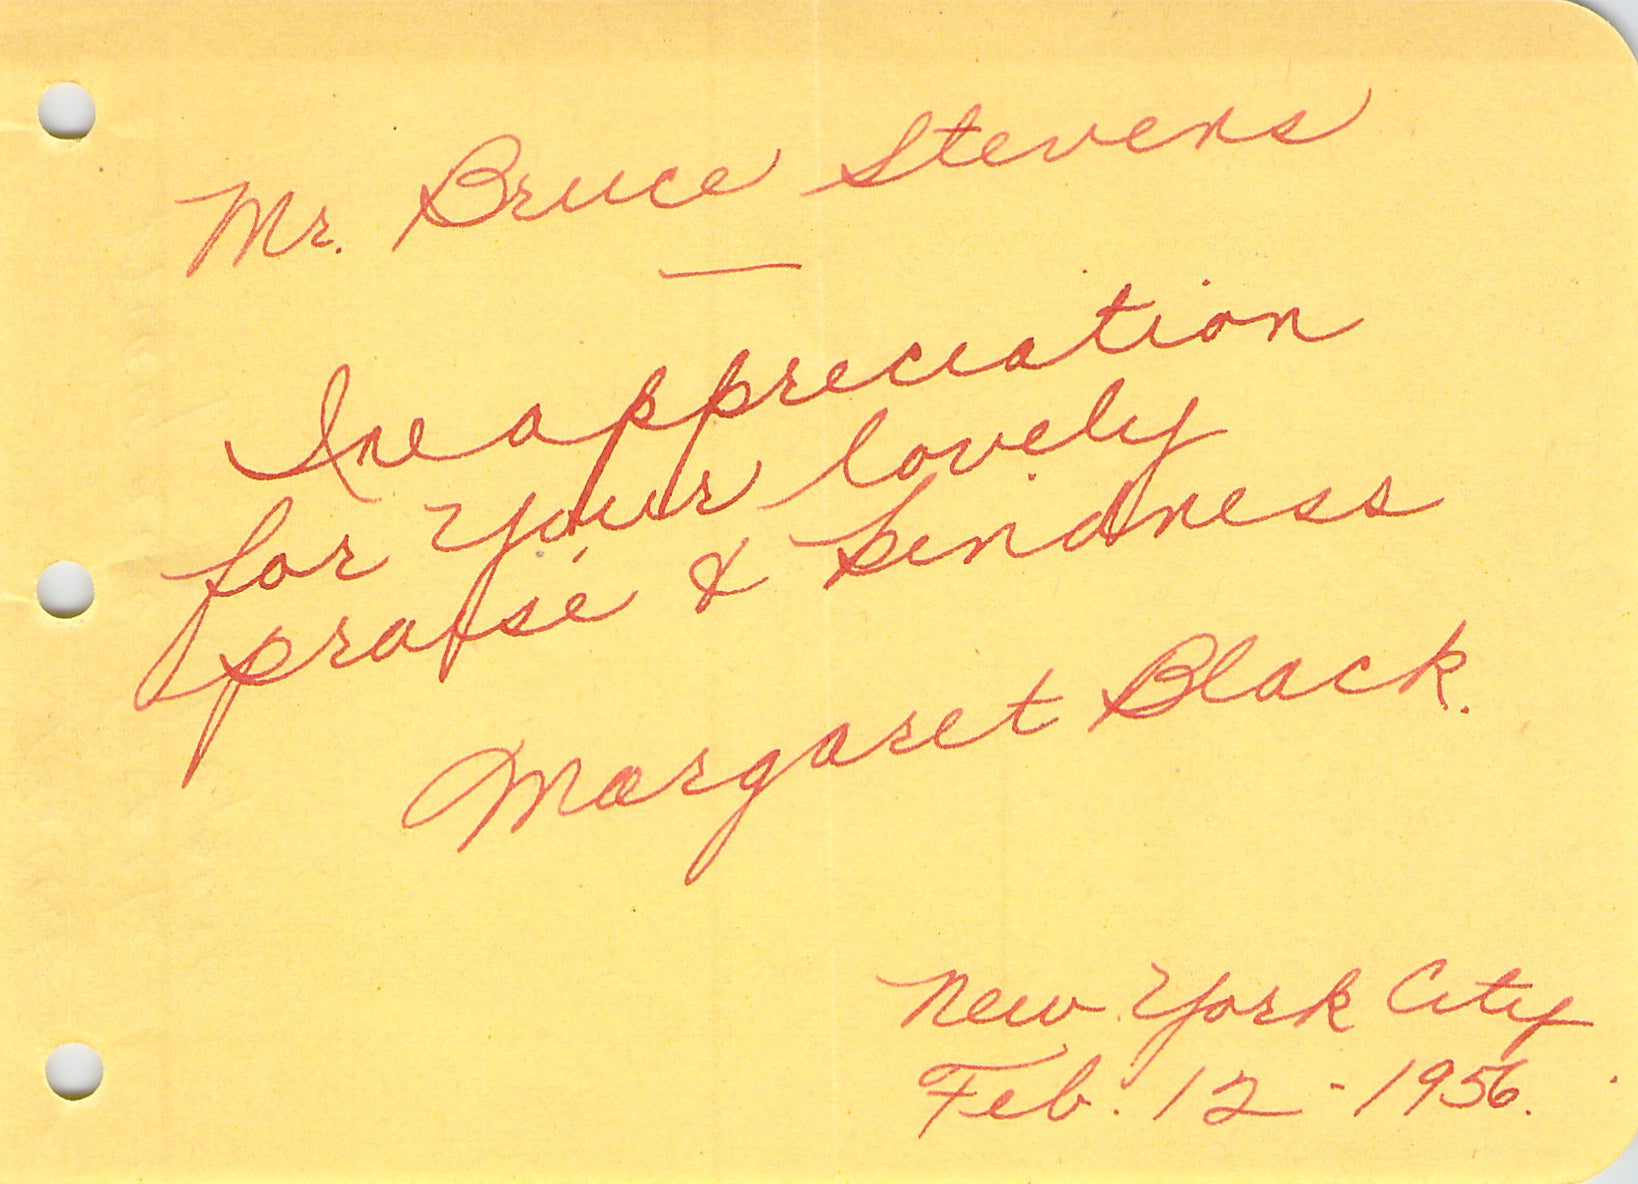 Mr. Bruce Stevens
In appreciation
for your lovely
praise & kindness
Margaret Black.
New York City
Feb. 12 - 1956.